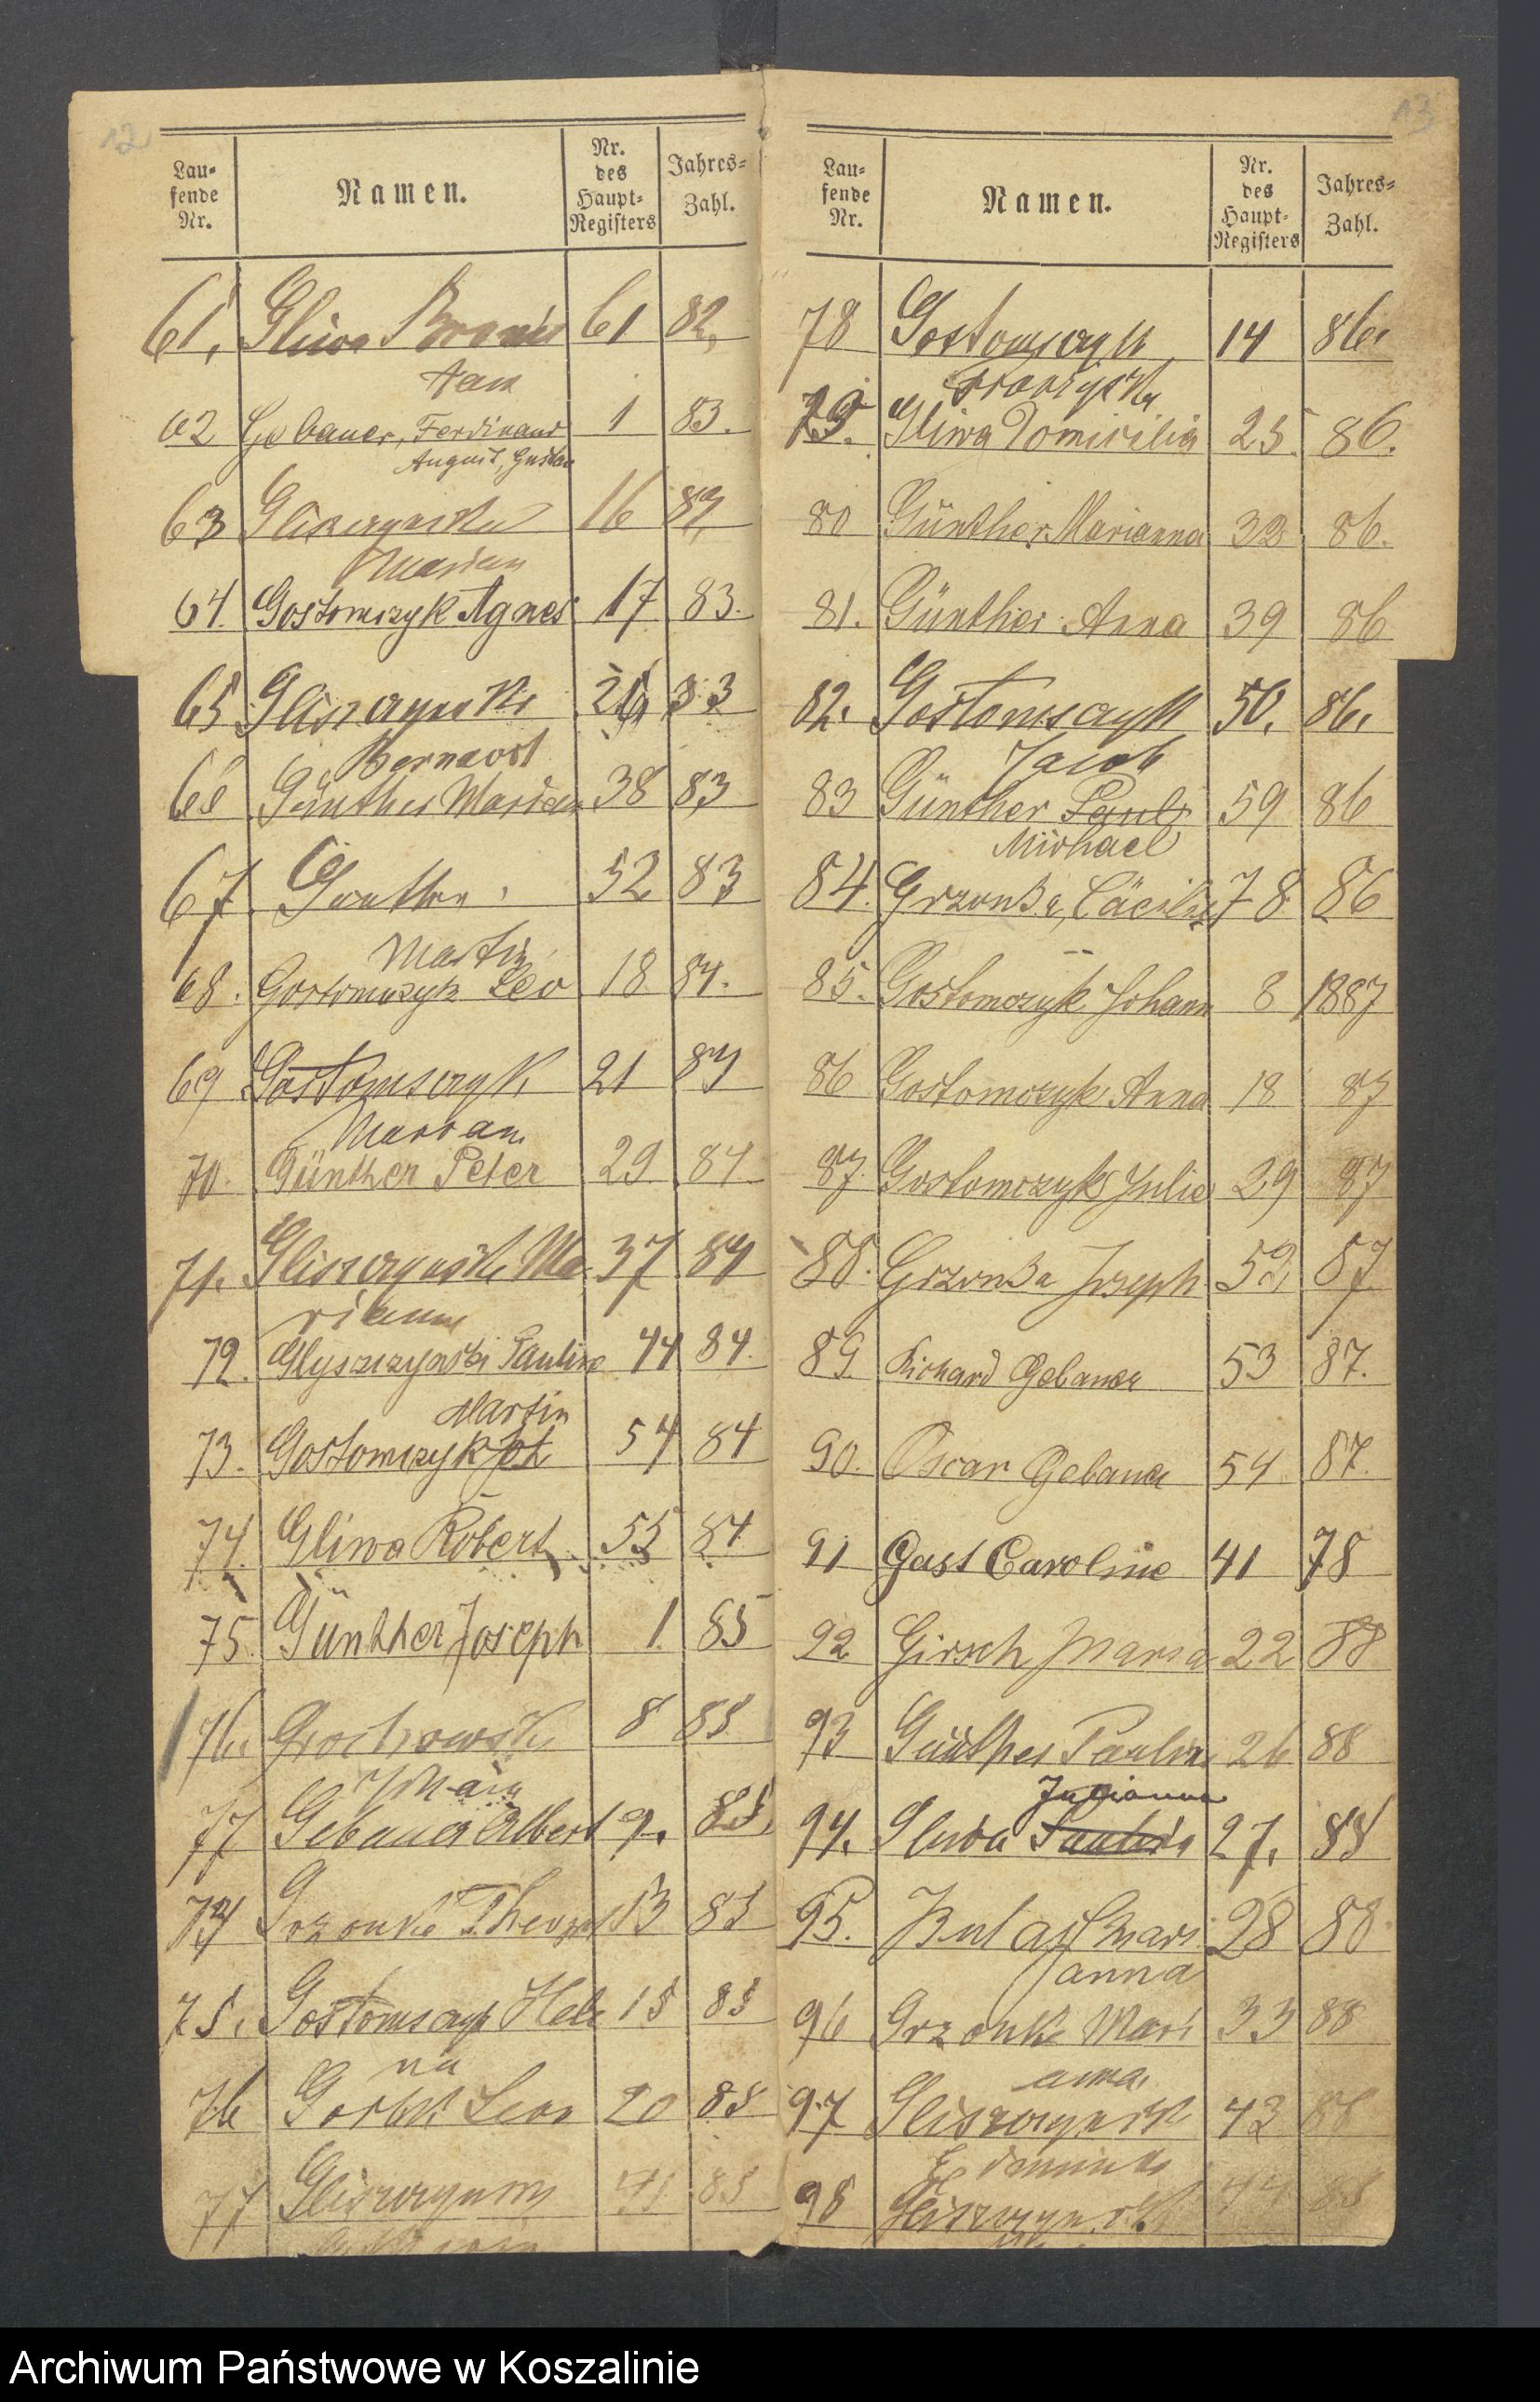 12
Lau-
fende
Nr.
Namen.
Nr.
des
Haupt-
Registers
Jahres-
Zahl.
61, Gliwa 61 82,
62 Gebauer, Ferdinand 1 83.
August, Gustav
63 16 83
Marian
64. Gostomczyk Agnes 17 83.
65 Gliszczynski 26, 83
Bernard
66 Günther Marian 38 83
67. Günther 52 83
Martin
68. Gostomczyk Leo 18 84.
69 Gostomsczyk 21 84
Marian
70. Günther Peter 29 84
71. Gliszczynski Ma 37 84
rianna
72. Glyszczynski Pauline 44 84.
Martin
73. Gostomczyk Joh 54 84
74. Gliwa Robert 55 84.
75. Günther Joseph 1. 85
76. Grochowski 8 85
Johann
77 Gebauer Albert 9. 85.
74 Grzonka 13 85
75. Gostomsczyk Hele 15 85
na
76 Leon 20 85
77 41 85
13
Lau-
fende
Nr.
Namen.
Nr.
des
Haupt-
Registers
Jahres-
Zahl.
78 Gostomsczyk 14 86.
Franziska
79. Gliwa Domicilia 25. 86.
80 Günther Marianna 32 86.
81. Günther Anna 39 86
82. Gostomsczyk 50. 86.
Jacob
83 Günther Paul 59 86
Michael
84. Grzonka, Cäcilie 78 86
85. Gostomczyk Johann 8 1887
86 Gostomczyk Anna 18 87
87. Gostomczyk Julie 29 87
88. Grzonka Joseph 52, 87
89. Richard Gebauer 53 87.
90. Oscar Gebauer 54 87.
91 Gast Caroline 41 78
92 Girsch Maria 22 88
93 Günther Paulin 26 88
Julianna
94. Gliwa Paulina 27. 88
95. Mari 28 88
anna
96 Grzonka Mari 33 88
anna
97 Gliszczynski 43 88
98 Gliszczynski 44 88
Archiwum Państwowe w Koszalinie